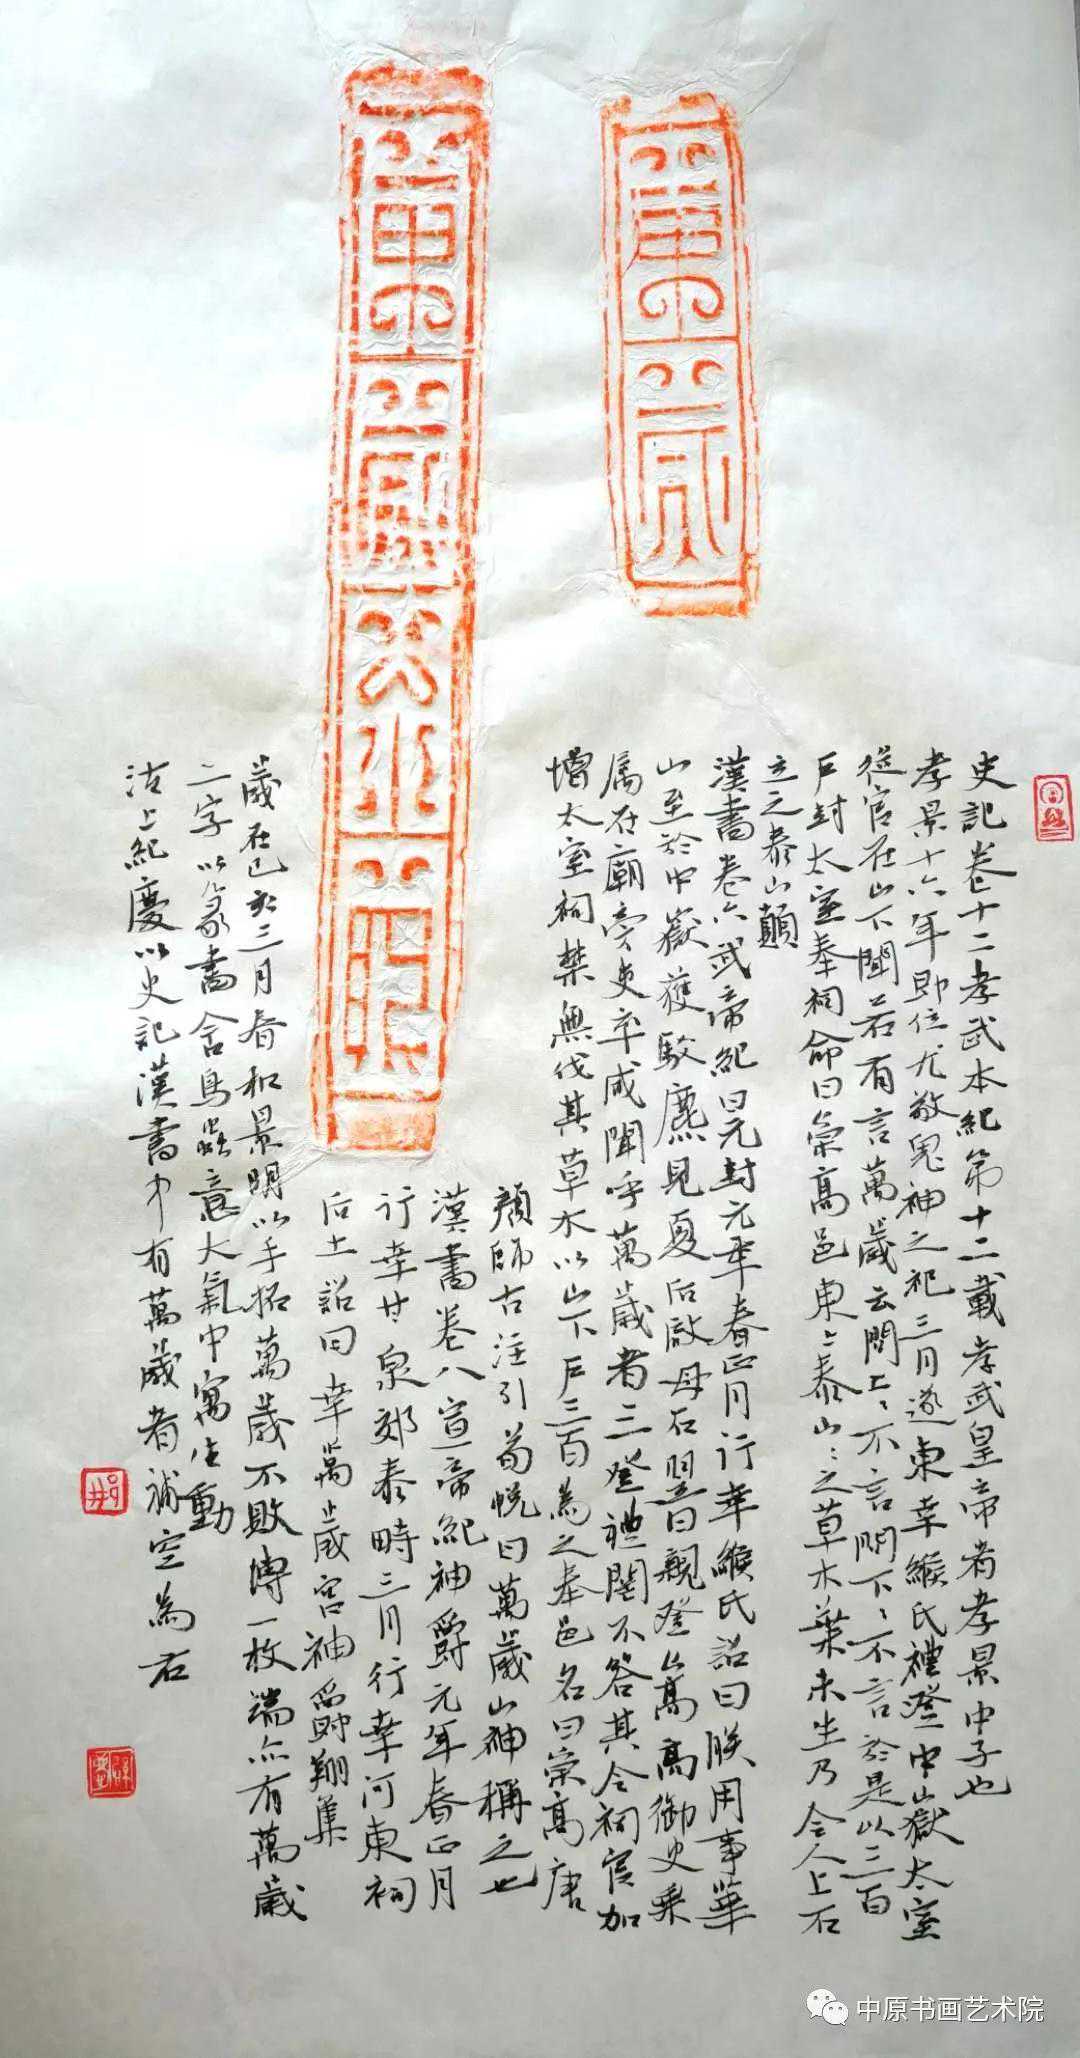 萬歲
萬歲不敗
史記卷十二孝武本紀第十二載孝武皇帝者孝景中子也
孝景十六年即位尤敬鬼神之祀三月遂東幸緱氏禮登中嶽太室
從官在山下聞若有言萬歲云問上〻不言問下〻不言於是以三百
戶封太室奉祠命曰崇高邑東〻泰山〻之草木葉未生乃令人上石
立之泰山顛
漢書卷六武帝紀曰元封元年春正月行幸緱氏詔曰朕用事華
山至於中嶽獲駮麃見夏后啟母石翌日親登嵩高御史乘
属在廟旁吏卒咸聞呼萬歲者三登禮罔不答其令祠官加
增太室祠禁無伐其草木以山下戶三百為之奉邑名曰崇高唐
顏師古注引荀悅曰萬歲山神稱之也
漢書卷八宣帝紀神爵元年春正月
行幸甘泉郊泰畤三月行幸河東祠
后土詔曰幸萬歲宮神爵翔集
歲在己亥三月春和景明以手拓萬歲不敗塼一枚端亦有萬歲
二字以篆書含鳥蟲意大氣中寓生動
沽上紀慶以史記漢書中有萬歲者補空為石
中原书画艺术院